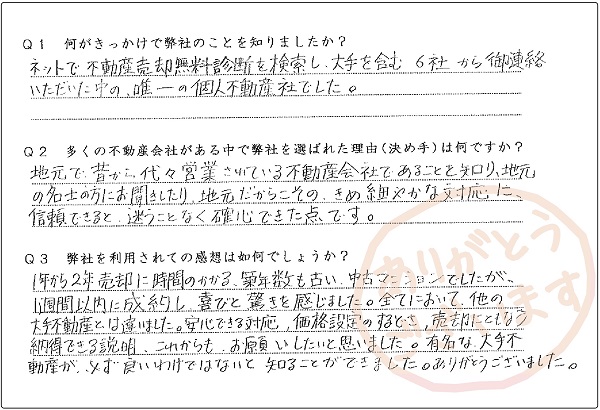 Q1 何がきっかけで弊社のことを知りましたか？
ネットで不動産売却無料診断を検索し、大手を含む6社から御連絡
いただいた中の、唯一の個人不動産社でした。
Q2 多くの不動産会社がある中で弊社を選ばれた理由(決め手)は何ですか？
地元で、昔から、代々営業されている不動産会社であることを知り、地元
の名士の方にお聞きしたり、地元だからこその、きめ細やかな対応に、
信頼できると、迷うことなく確心できた点です。
Q3 弊社を利用されての感想は如何でしょうか？
1年から2年売却に時間のかかる、築年数も古い、中古マンションでしたが、
1週間以内に成約し、喜びと驚きを感じました。全てにおいて、他の
大手不動産とは違いました。安心できる対応、価格設定の、売却にともなう
納得できる説明、これからも、お願いしたいと思いました。有名な、大手不
動産が、必ず良いわけではないと知ることができました。ありがとうございました。
ありがとう
ございます